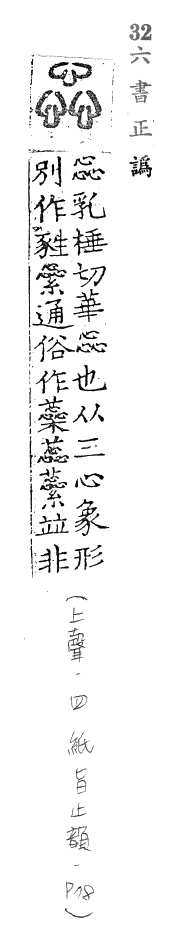 32
六書正譌
惢乳棰切華惢也从三心象形
別作甤繠通俗作蘂蕊蕋並非
(上聲.四紙旨止韻.P18)